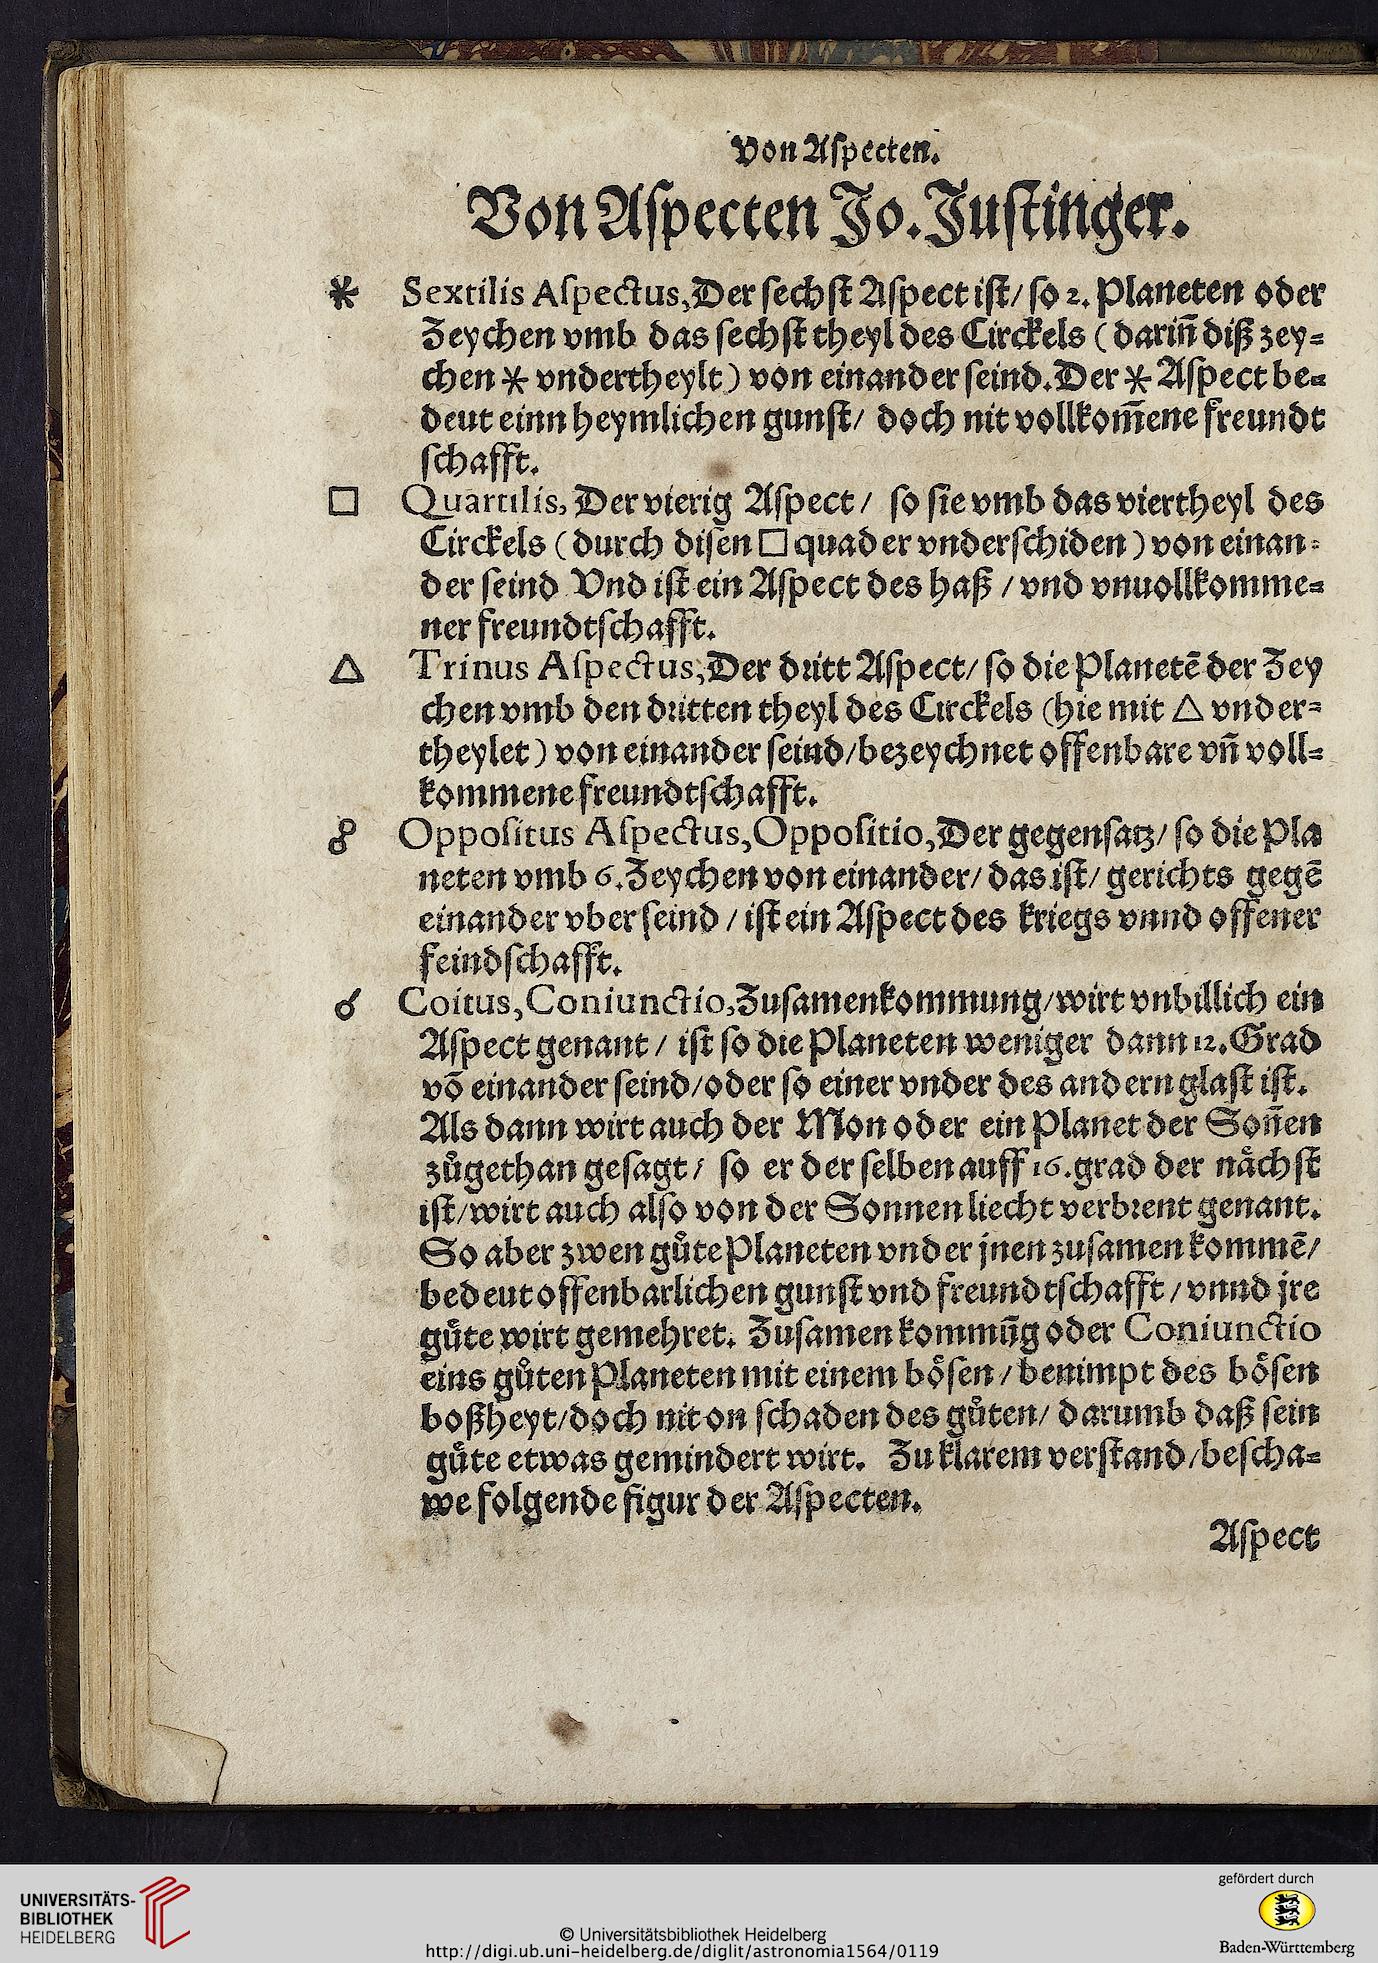 Von Aſpecten.
Von Aſpecten Jo. Juſtinger.
⚹ Sextilis Aſpectus, Der ſechſt Aſpect iſt/ ſo 2. Planeten oder
Zeychen vmb das ſechſt theyl des Circkels (dariñ diß zey⸗
chen ⚹ vndertheylt) von einander ſeind. Der ⚹ Aſpect be⸗
deut einn heymlichen gunſt/ doch nit vollkom̃ene freundt
ſchafft.
□ Quartilis, Der vierig Aſpect/ ſo ſie vmb das viertheyl des
Circkels (durch diſen □ quader vnderſchiden) von einan⸗
der ſeind Vnd iſt ein Aſpect des haß/ vnd vnuollkomme⸗
ner freundtſchafft.
△ Trinus Aſpectus, Der dritt Aſpect/ ſo die Planetē der Zey
chen vmb den dritten theyl des Circkels (hie mit △ vnder⸗
theylet) von einander ſeind/ bezeychnet offenbare vñ voll⸗
kommene freundtſchafft.
☍ Oppoſitus Aſpectus, Oppoſitio, Der gegenſatz/ ſo die Pla
neten vmb 6. Zeychen von einander/ das iſt/ gerichts gegē
einander vber ſeind/ iſt ein Aſpect des kriegs vnnd offener
feindſchafft.
☌ Coitus, Coniunctio, Zuſamenkommung/ wirt vnbillich ein
Aſpect genant/ iſt ſo die Planeten weniger dann 12. Grad
vō einander ſeind/ oder ſo einer vnder des andern glaſt iſt.
Als dann wirt auch der Mon oder ein Planet der Soñen
zůgethan geſagt/ ſo er der ſelben auff 16. grad der nåchſt
iſt/ wirt auch alſo von der Sonnen liecht verbrent genant.
So aber zwen gůte Planeten vnder jnen zuſamen kommē/
bedeut offenbarlichen gunſt vnd freundtſchafft/ vnnd jre
gůte wirt gemehret. Zuſamen kommũg oder Coniunctio
eins gůten Planeten mit einem böſen/ benimpt des böſen
boßheyt/ doch nit on ſchaden des gůten/ darumb daß ſein
gůte etwas gemindert wirt. Zu klarem verſtand/ beſcha⸗
we folgende figur der Aſpecten.
Aſpect
UNIVERSITÄTS-
BIBLIOTHEK
HEIDELBERG
© Universitätsbibliothek Heidelberg
http://digi.ub.uni-heidelberg.de/diglit/astronomia1564/0119
gefördert durch
Baden-Württemberg